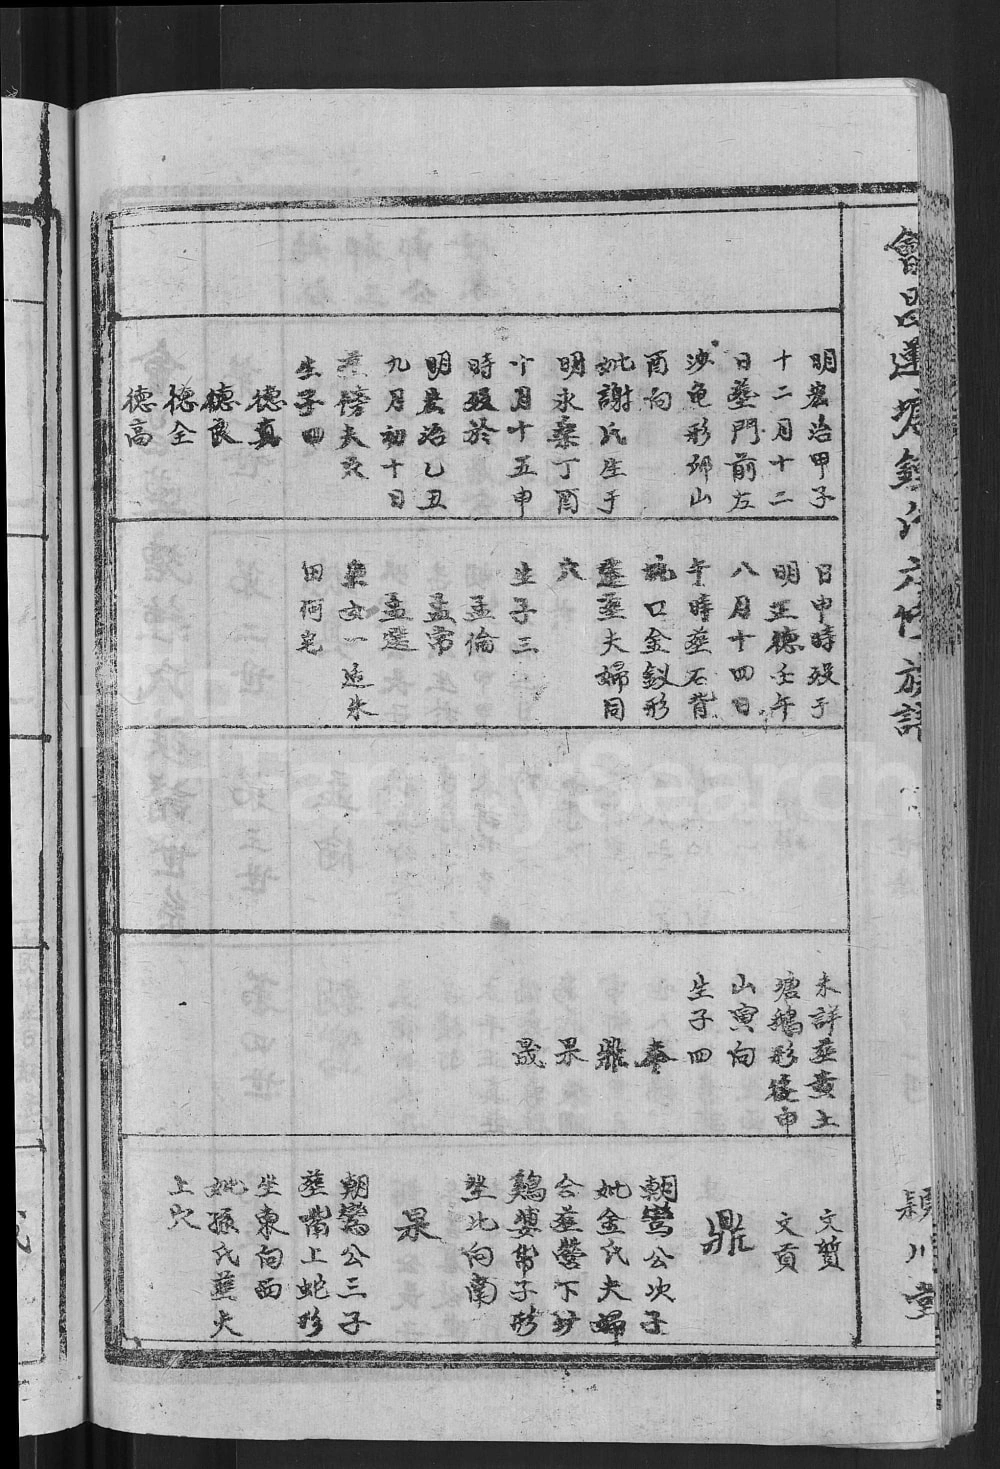 會昌蓮塘鍾氏六修族譜
穎川堂
明宏治甲子
十二月十二
日塟門前左
沙龟形卯山
酉向
妣謝氏生于
明永樂丁酉
十月十五申
時殁於
明宏治乙丑
九月初十日
塟傍夫
生子四
德真
德良
德全
德高
日申時殁于
明正德壬午
八月十四日
午時塟石背
坑口金釵形
塟夫婦同
穴
生子三
孟倫
孟常
孟選
女一适朱
田何屯
未詳塟黄土
塘鵝形後申
山寅向
生子四
奉
鼎
杲
晟
文質
文貢
鼎
朝鸞公次子
妣金氏夫婦
合塟營下
鷄婆帶子形
坐北向南
杲
朝鸞公三子
塟嘴上蛇形
坐東向西
妣孫氏塟夫
上穴
FamilySearch